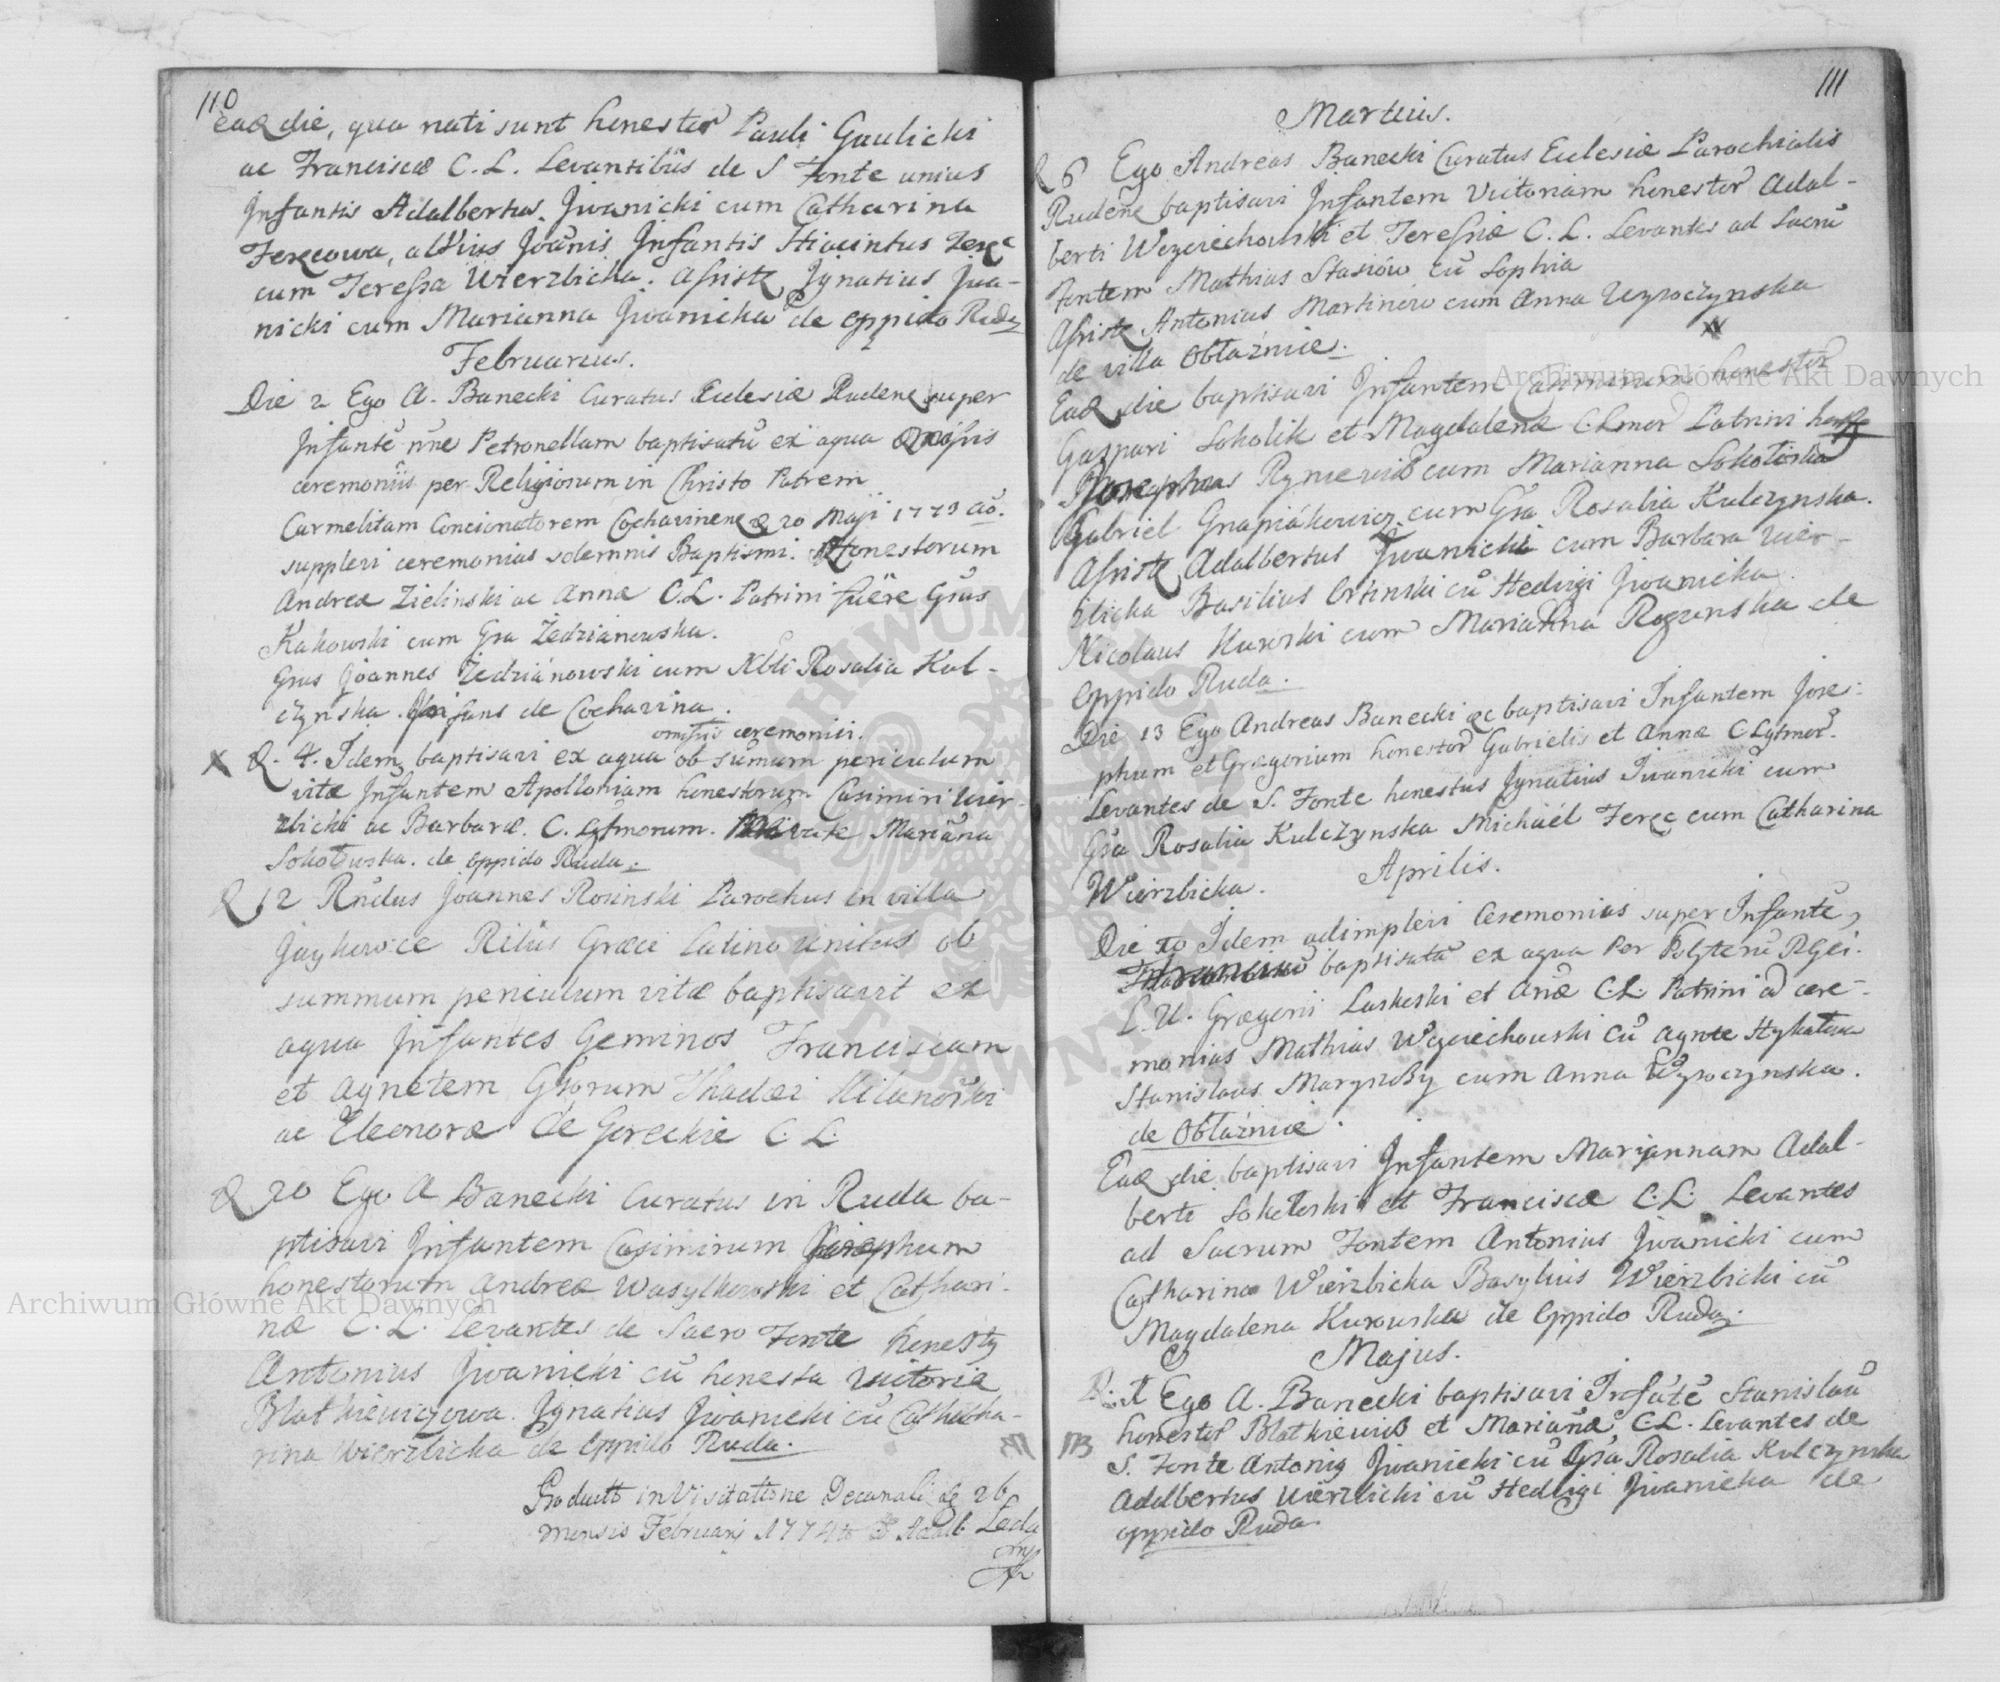 110
eade die, qua nati sunt honestor Pauli Gaulicki
ac Franciscæ C. L. Levantibus de S Fonte unius
Infantis Adalbertus Jwanicki cum Catharina
Ferecowa, alterius Joānis Infantis Hiacintus Ferec
cum Teressa Wierzbicka. Assiste Ignatius Jwa-
nicki cum Marianna Jwanicka de oppido Ruda
Februarius.
Die 2 Ego A. Banecki Curatus Eclesiæ Rudene super
Infantē nñe Petronellam baptisatū ex aqua omissis
ceremoniis per Religiosum in Christo Patrem
Carmelitam Concionatorem Cochavinene d 20 Maji 1773 aō.
supplevi ceremonias solemnis Baptismi. Honestorum
Andreæ Zielinski ac Annæ C.L. Patrini fuēre Gsus
Kakowski cum Gsa Zedzianowska.
Gsus Joannes Zedzianowski cum Nbli Rosalia Kul-
czynska. Infans de Cochavina.
omissis ceremoniis.
X D. 4. Idem baptisavi ex aqua ob sumum periculum
vitæ Infantem Apolloniam honestorum Casimiri Wier-
zbicki ac Barbaræ. C. Lgtmorum. Marianna
Sokołowska. de oppido Ruda.
D 12 Rndus Joannes Rosinski Parochus in villa
Juykowce Ritūs Græci Latino Unitus ob
summum periculum vitæ baptisavit ex
aqua Infantes Geminos Franciscam
et Agnetem Gsorum Thadæi Milanoŵski
ac Eleonoræ de Goreckie C. L.
D 20 Ego A Banecki Curatus in Ruda ba-
ptisavi Infantem Casimirum Josephum
honestorum Andreæ Wasylkowski et Cathari-
næ C. L. Levantes de Sacro Fonte honesty
Antonius Jwanicki cū honesta Victoria
Blatkiewiczowa. Ignatius Jwanicki cū Catha-
rina Wierzbicka de oppido Ruda.
Producto in Visitatione Decanali de 26
mensis Februarij 1774to
111
Martius.
D 6 Ego Andreas Banecki Curatus Eclesiæ Parochialis
Rudene baptisavi Infantem Victoriam honestor Adal-
berti Wozciechowski et Teressiæ C. L. Levantes ad Sacrū
Fontem Mathias Stasiów cū Sophia
Assiste Antonius Martinów cum Anna Wysoczynska
de villa Obłaźnice.
Eade die baptisavi Infantem Casimirum honestor
Gaspari Sokolik et Magdalenæ C.Lmor Patrini
Josephus Rymewicz cum Marianna Sokołoska
Gabriel Gnapiákowicz cum Gsa Rosalia Kulczynska.
Assiste Adalbertus Jwanicki cum Barbara Wier-
zbicka Basilius Ortinski cū Hedvigi Jwanicka.
Nicolaus Kurowski cum Marianna Rozynska de
oppido Ruda.
Die 13 Ego Andreas Banecki ac baptisavi Infantem Jose-
phum et Gregorium honestor Gabrielis et Annæ C Lgtmor.
Levantes de S. Fonte honestus Ignatius Iwanicki cum
Gsa Rosalia Kulczynska Michaël Ferec cum Catharina
Wierzbicka.
Aprilis.
Die 10 Idem adimplevi Ceremonias super Infante,
Franciscū baptisatū ex aqua Per Psbyterū RGri.
L. U. Gregorii Laskoski et Anæ C.L. Patrini ad cere-
monias Mathias Wozciechowski cū Agnete
Stanislaus cum Anna Wysoczynska.
de Obłaźnice.
Eade die baptisavi Infantem Mariannam Adal-
berti Sokołoski et Franciscæ C.L. Levantes
ad Sacrum Fontem Antonius Jwanicki cum
Catharina Wierzbicka Basylius Wierzbicki cū
Magdalena Kurowska de oppido Ruda.
Majus.
D. 1 Ego A. Banecki baptisavi Infātē Stanislaū
honestor Blatkiewicz et Mariānæ C.L. Levantes de
S. Fonte Antonig Jwanicki cū Gsa Rosalia Kulczynska
Adalbertus Wierzbicki cū Hedvigi Jwanicka de
oppido Ruda.
Archiwum Główne Akt Dawnych
Archiwum Główne Akt Dawnych
ARCHIWUM GŁÓWNE AKT DAWNYCH